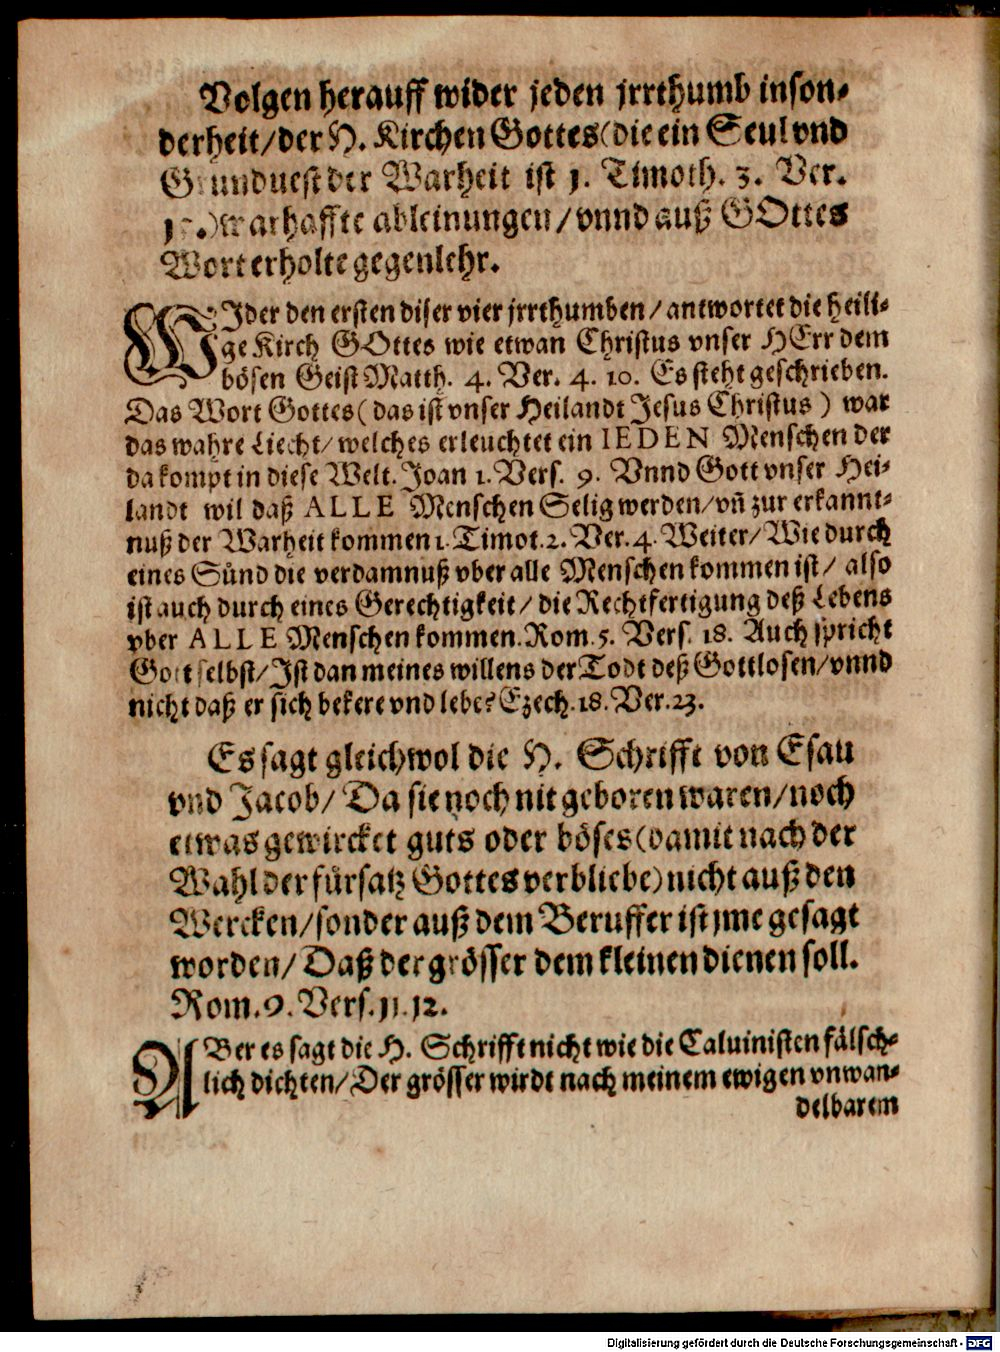 Volgen herauff wider jeden jrrthumb inson-
derheit/der H. Kirchen Gottes(die ein Seul vnd
Grunduest der Warheit ist 1. Timoth. 3. Ver.
warhaffte ableinungen/vnnd auß GOttes
Wort erholte gegenlehr.
WIder den ersten diser vier jrrthumben/antwortet die heili-
ge Kirch GOttes wie etwan Christus vnser HErr dem
bösen Geist Matth. 4. Ver. 4. 10. Es steht geschrieben.
Das Wort Gottes(das ist vnser Heilandt Jesus Christus) war
das wahre Liecht/welches erleuchtet ein IEDEN Menschen der
da kompt in diese Welt. Joan 1. Vers. 9. Vnnd Gott vnser Hei-
landt wil daß ALLE Menschen Selig werden/vñ zur erkannt-
nuß der Warheit kommen 1. Timot. 2. Ver. 4. Weiter/Wie durch
eines Sünd die verdamnuß vber alle Menschen kommen ist/also
ist auch durch eines Gerechtigkeit/die Rechtfertigung deß Lebens
vber ALLE Menschen kommen. Rom. 5. Vers. 18. Auch spricht
Gott selbst/Ist dan meines willens der Todt deß Gottlosen/vnnd
nicht daß er sich bekere vnd lebe? Ezech. 18. Ver. 23.
Es sagt gleichwol die H. Schrifft von Esau
vnd Jacob/Da sie noch nit geboren waren/noch
etwas gewircket guts oder böses(damit nach der
Wahl der fürsatz Gottes verbliebe)nicht auß den
Wercken/sonder auß dem Beruffer ist jme gesagt
worden/Daß der grösser dem kleinen dienen soll.
Rom. 9. Vers. 11. 12.
ABer es sagt die H. Schrifft nicht wie die Caluinisten fälsch-
lich dichten/Der grösser wirdt nach meinem ewigen vnwan-
delbarem
Digitalisierung gefördert durch die Deutsche Forschungsgemeinschaft - DFG